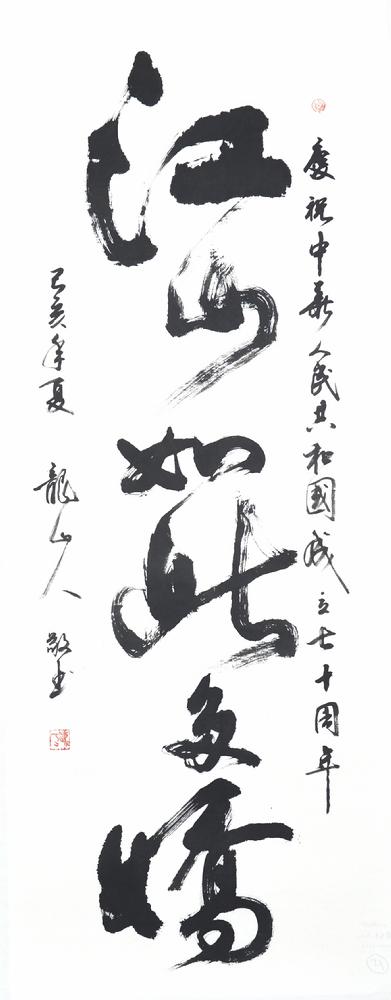 慶祝中華人民共和國成立七十周年
江山如此多嬌
己亥年夏 龍山人 敬书